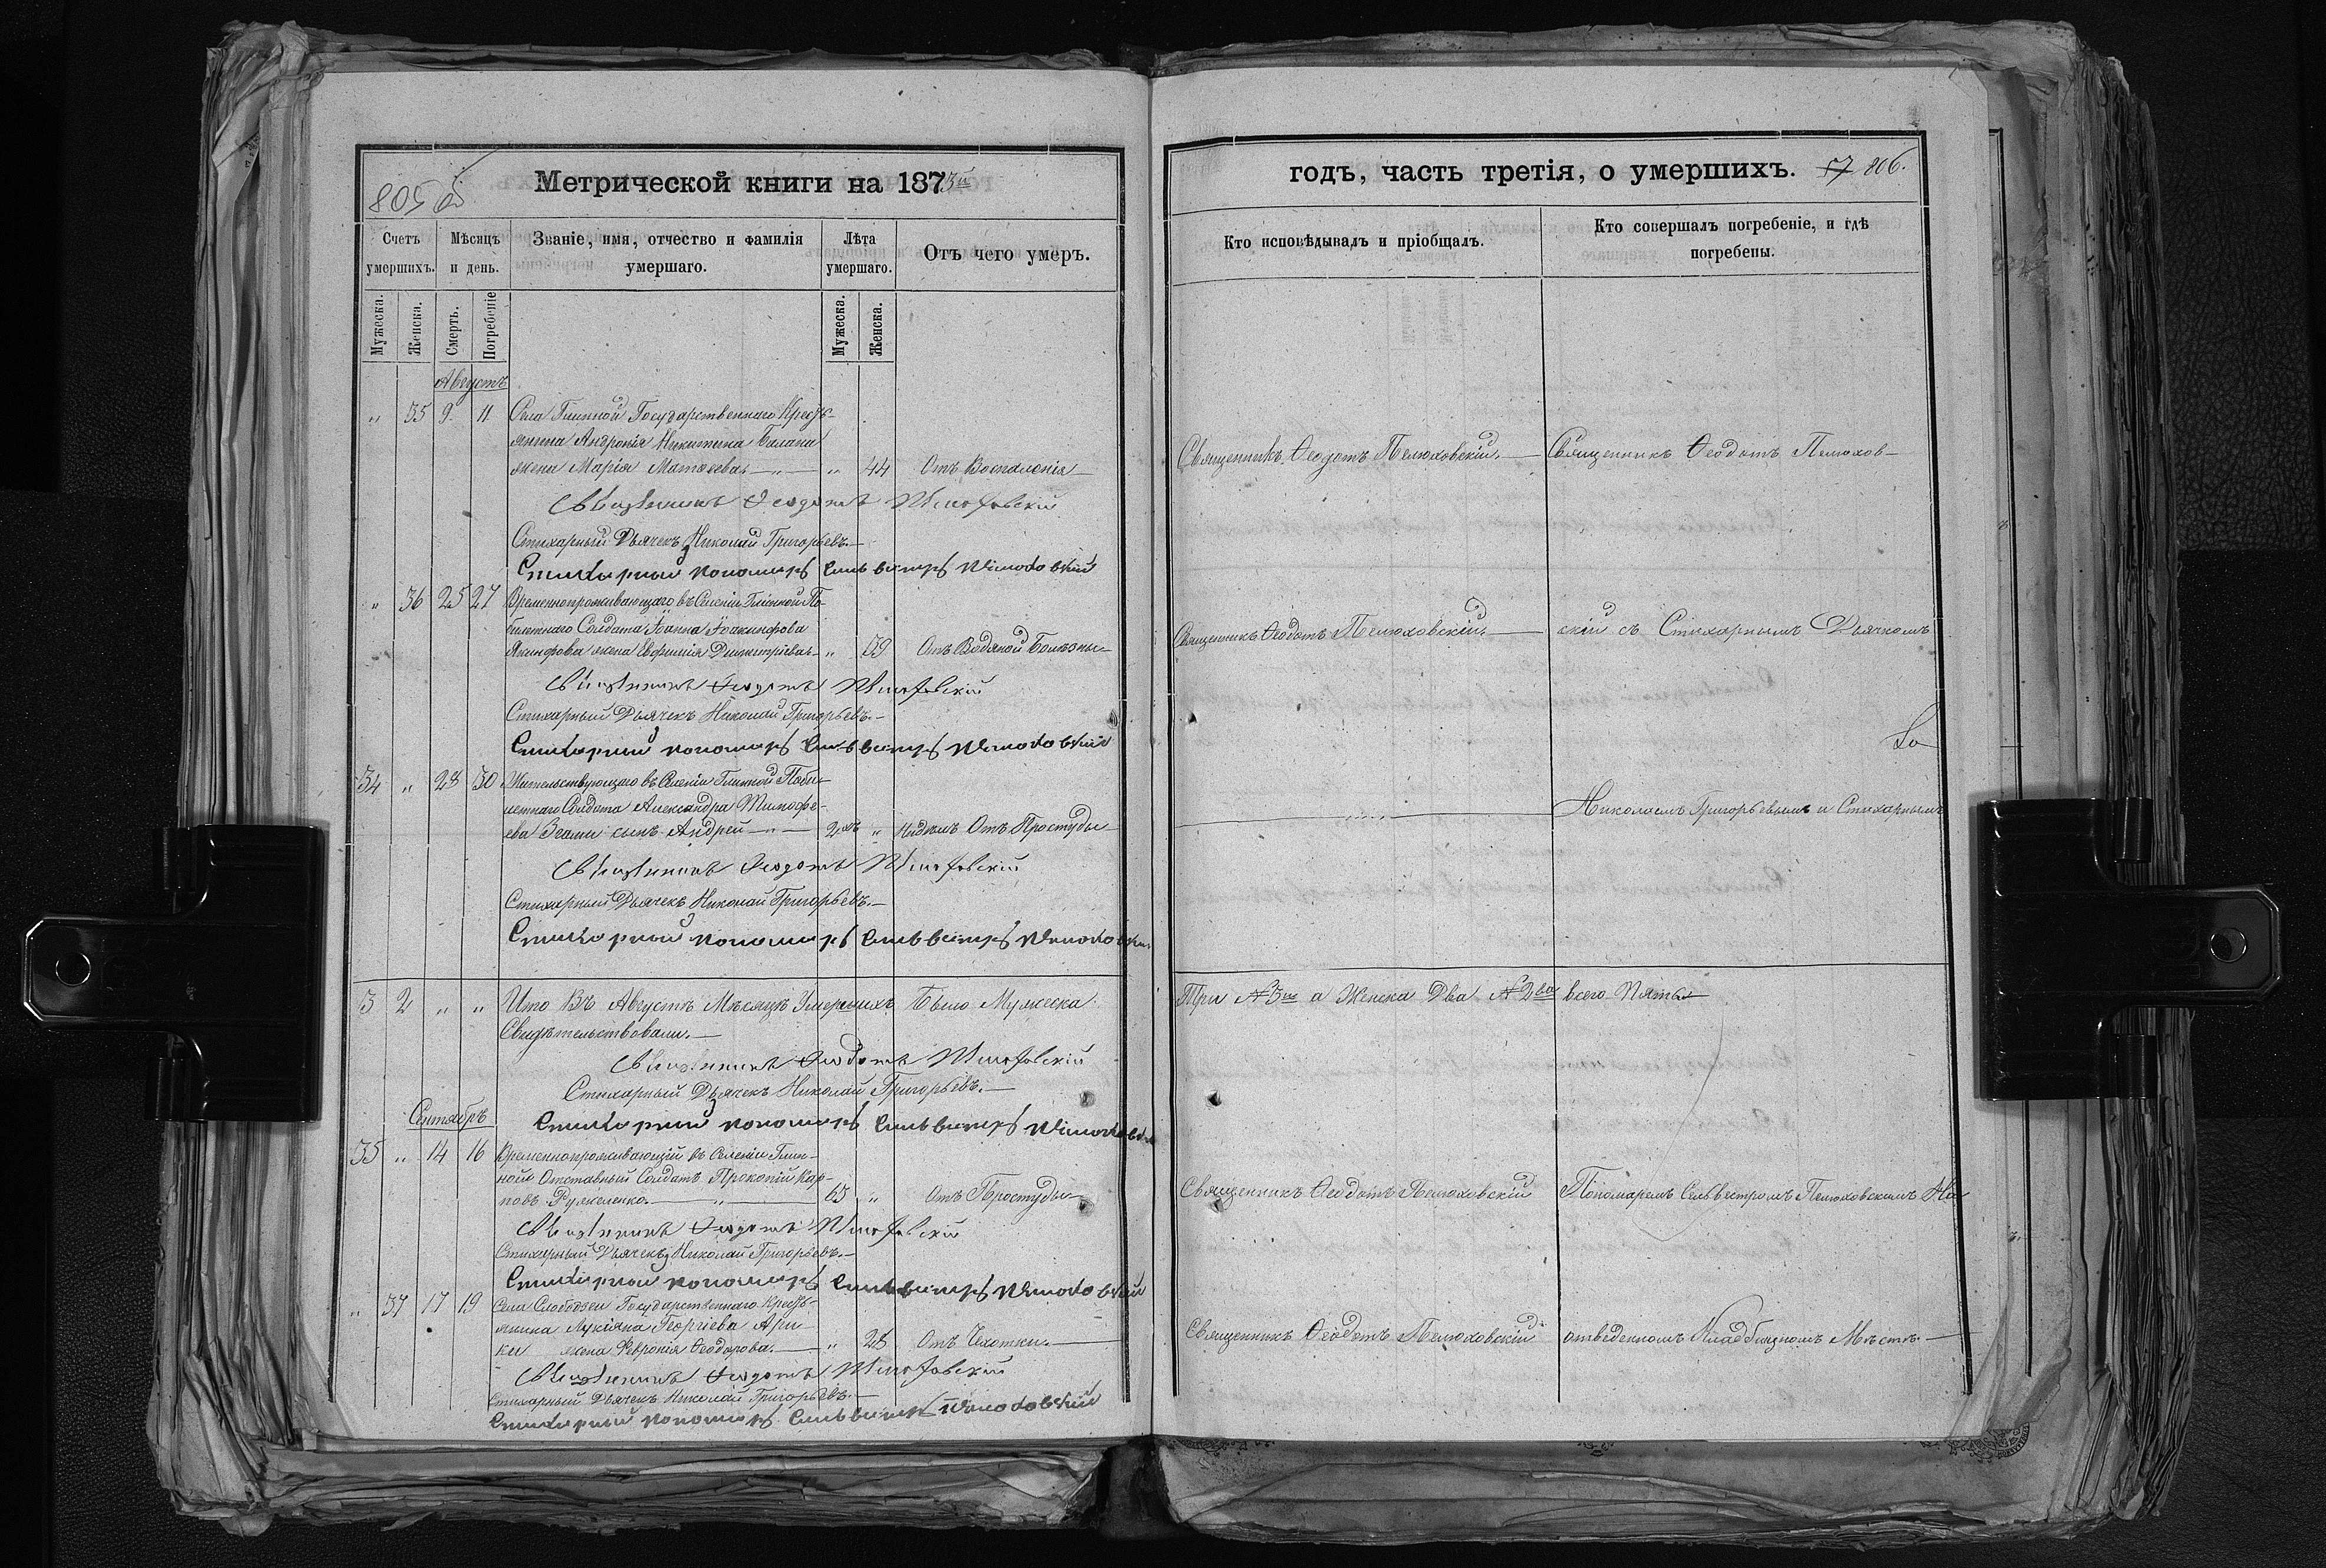 Метрической книги на 1873й
805 об
Счетъ умершихъ.
Мѣсяцъ и день.
Званіе, имя, отчество и фамилія умершаго.
Лѣта умершаго.
Отъ чего умеръ.
Мужеска.
Женска.
Смерть.
Погребеніе
Мужеска.
Женска.
Августъ
„ 35 9 11 Села Глинной Государственнаго Кресть-
янина Андронія Никитина Балана
жена Марія Матѳеева „ 44 Отъ Воспаленія
Священникъ Ѳеодотъ Пелюховскій
Стихарный Дьячекъ Николай Григорьевъ.
Стихарный пономарь Сильвестръ Пелюховскій
„ 36 25 27 Временнопроживающаго въ Селеніи Глинной По-
билетнаго Солдата Іоанна Іоакинфова
Якинфова жена Евфимія Димитріева „ 39 Отъ Водяной Болѣзны
Священникъ Ѳеодотъ Пелюховскій
Стихарный Дьячекъ Николай Григорьевъ.
Стихарный пономарь Сильвестръ Пелюховскій
34 „ 28 30 Жительствующаго въ Селеніи Глинной Поби-
летнаго Солдата Александра Тимофе-
ева сынъ Андрей 2хъ „ Отъ Простуды
Священникъ Ѳеодотъ Пелюховскій
Стихарный Дьячекъ Николай Григорьевъ.
Стихарный пономарь Сильвестръ Пелюховскій
3 2 „ „ Итого Въ Августѣ Мѣсяцѣ Умершихъ Было Мужеска
Свидѣтельствовали.
Священникъ Ѳеодотъ Пелюховскій
Стихарный Дьячекъ Николай Григорьевъ.
Сентябрь
Стихарный пономарь Сильвестръ Пелюховскій
35 „ 14 16 Временнопроживающій въ Селеніи Глин-
ной Отставный Солдатъ Прокопій Кар-
повъ 65 „ Отъ Простуды
Священникъ Ѳеодотъ Пелюховскій
Стихарный Дьячекъ Николай Григорьевъ.
Стихарный пономарь Сильвестръ Пелюховскій
„ 37 17 19 Села Слободзеи Государственнаго Кресть-
янина Лукіяна Георгіева Ари
ки жена Февронія Ѳеодорова. „ 28 Отъ Чахотки.
Священникъ Ѳеодотъ Пелюховскій
Стихарный Дьячекъ Николай Григорьевъ.
Стихарный пономарь Сильвестръ Пелюховскій
годъ, часть третія, о умершихъ. 57 806.
Кто исповѣдывалъ и пріобщалъ.
Кто совершалъ погребеніе, и гдѣ погребены.
Священникъ Ѳеодотъ Пелюховскій. Священникъ Ѳеодотъ Пелюхов-
Священникъ Ѳеодотъ Пелюховскій. скій съ Стихарнымъ Дьячкомъ
Николаемъ Григорьевымъ и Стихарнымъ
Три №3ри а Женска Два №2ва всего Пять
Священникъ Ѳеодотъ Пелюховскій Пономаремъ Сельвестромъ Пелюховскимъ На
Священникъ Ѳеодотъ Пелюховскій отведенномъ Кладбищномъ Мѣстѣ.